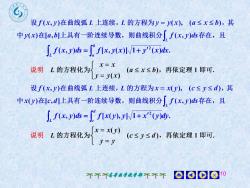 设 f(x,y) 在曲线弧 L 上连续，L 的方程为 y = y(x), (a ≤ x ≤ b)，其
中 y(x) 在[a,b]上具有一阶连续导数，则曲线积分∫_L f(x,y)ds 存在，且
∫_L f(x,y)ds = ∫_a^b f[x,y(x)]√(1+y′²(x))dx.
说明 L 的方程化为 { x = x, y = y(x) (a ≤ x ≤ b)，再依定理 1 即可.
设 f(x,y) 在曲线弧 L 上连续，L 的方程为 x = x(y), (c ≤ y ≤ d)，其
中 x(y) 在[c,d]上具有一阶连续导数，则曲线积分∫_L f(x,y)ds 存在，且
∫_L f(x,y)ds = ∫_c^d f[x(y),y]√(1+x′²(y))dy.
说明 L 的方程化为 { x = x(y), y = y (c ≤ y ≤ d)，再依定理 1 即可.
10